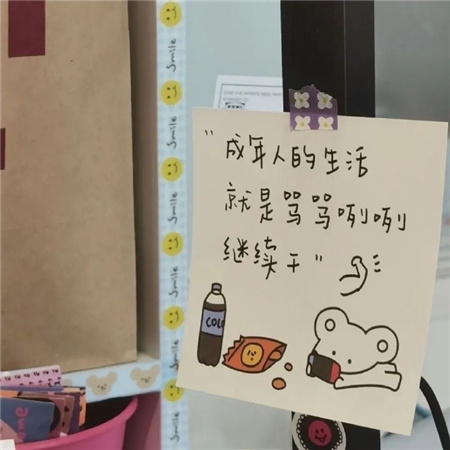 "成年人的生活
就是骂骂咧咧
继续干"
COLA
Smile
Smile
Smile
Smile
Smile